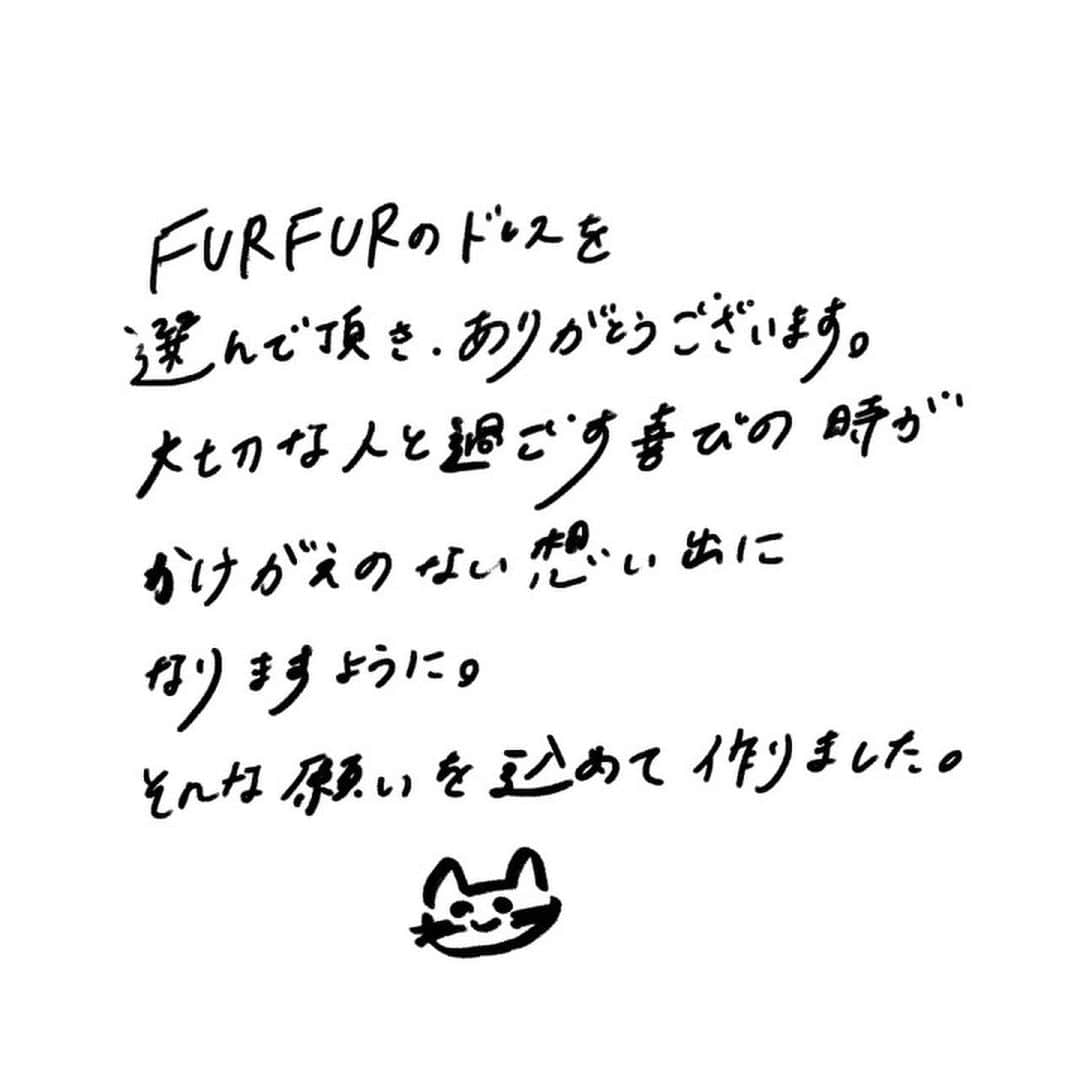 FURFURのドレスを
選んで頂き.ありがとうございます。
大切な人と過ごす喜びの時が
かけがえのない想い出に
なりますように。
そんな願いを込めて作りました。